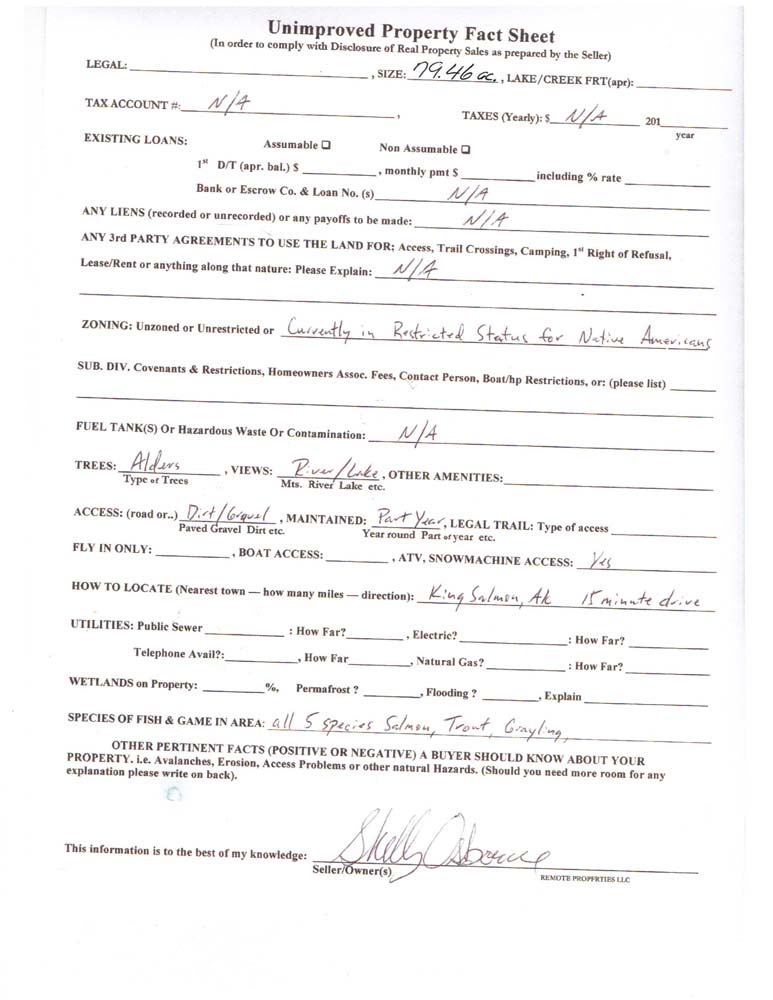 Unimproved Property Fact Sheet
(In order to comply with Disclosure of Real Property Sales as prepared by the Seller)
LEGAL: ____________ , SIZE: 79.46 ac. , LAKE/CREEK FRT(apr): ____________
TAX ACCOUNT #: N/A , TAXES (Yearly): $ N/A 201____
year
EXISTING LOANS: Assumable ❑ Non Assumable ❑
1st D/T (apr. bal.) $ ____________ , monthly pmt $ ____________ including % rate ____________
Bank or Escrow Co. & Loan No. (s) N/A
ANY LIENS (recorded or unrecorded) or any payoffs to be made: N/A
ANY 3rd PARTY AGREEMENTS TO USE THE LAND FOR; Access, Trail Crossings, Camping, 1st Right of Refusal,
Lease/Rent or anything along that nature: Please Explain: N/A
ZONING: Unzoned or Unrestricted or Currently in Restricted Status for Native Americans
SUB. DIV. Covenants & Restrictions, Homeowners Assoc. Fees, Contact Person, Boat/hp Restrictions, or: (please list) ________
FUEL TANK(S) Or Hazardous Waste Or Contamination: N/A
TREES: Alders , VIEWS: River/Lake , OTHER AMENITIES: ____________
Type of Trees Mts. River Lake etc.
ACCESS: (road or..) Dirt/Gravel , MAINTAINED: Part Year , LEGAL TRAIL: Type of access ____________
Paved Gravel Dirt etc. Year round Part of year etc.
FLY IN ONLY: ____________ , BOAT ACCESS: ____________ , ATV, SNOWMACHINE ACCESS: Yes
HOW TO LOCATE (Nearest town — how many miles — direction): King Salmon, Ak 15 minute drive
UTILITIES: Public Sewer ____________ : How Far? ____________ , Electric? ____________ : How Far? ____________
Telephone Avail?: ____________ , How Far ____________ , Natural Gas? ____________ : How Far? ____________
WETLANDS on Property: ____________ %, Permafrost ? ____________ , Flooding ? ____________ , Explain ____________
SPECIES OF FISH & GAME IN AREA: all 5 species Salmon, Trout, Grayling,
OTHER PERTINENT FACTS (POSITIVE OR NEGATIVE) A BUYER SHOULD KNOW ABOUT YOUR
PROPERTY. i.e. Avalanches, Erosion, Access Problems or other natural Hazards. (Should you need more room for any
explanation please write on back).
This information is to the best of my knowledge: Shelly Osborne
Seller/Owner(s)
REMOTE PROPERTIES LLC